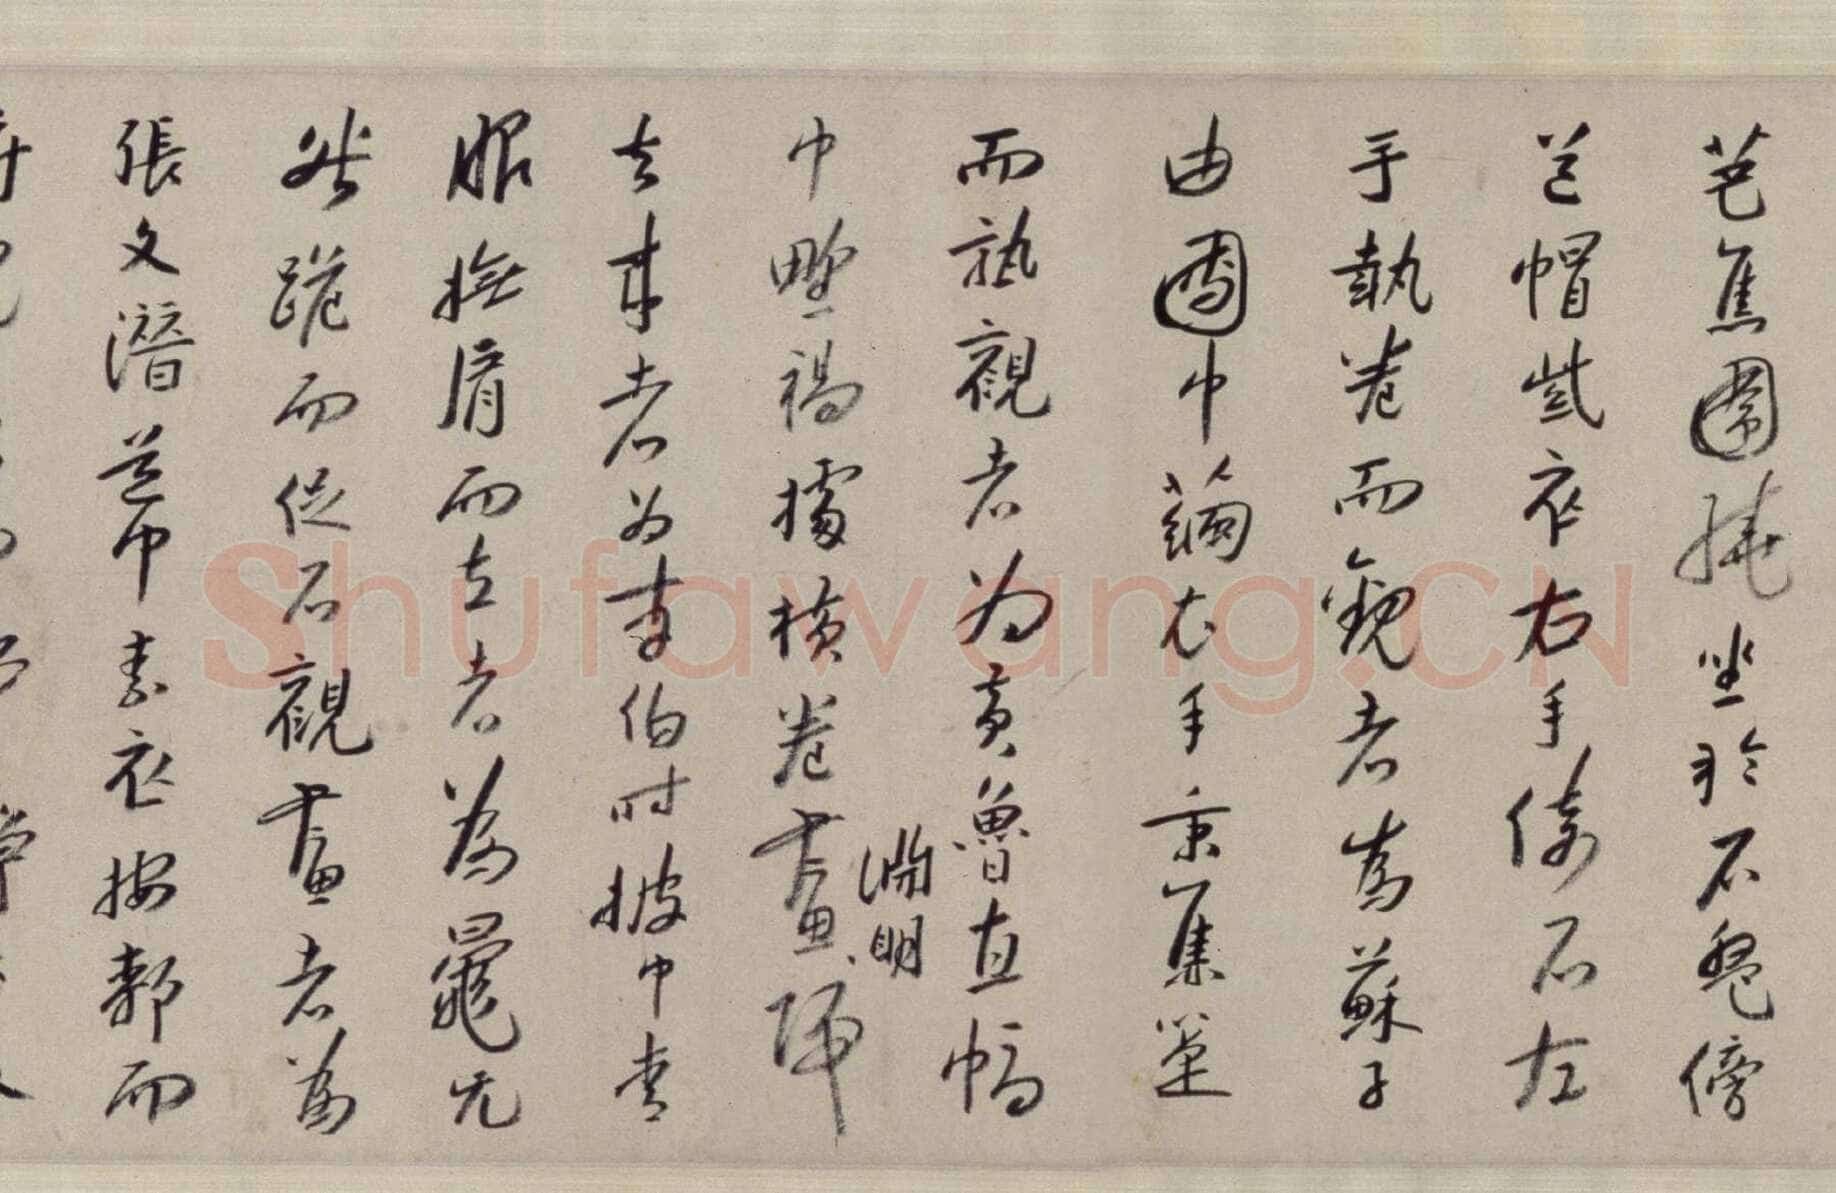 芭焦圍繞坐於石盤傍
道帽紫衣右手倚石左
手執卷而觀者為蘇子
由團巾繭衣手秉蕉箑
而熟觀者為黃魯直幅
巾野褐據橫卷畫歸
淵明
去來者為李伯時披巾青
服撫肩而立者為晁无
咎跪而促石觀畫者為
張文潛道巾素衣按而
Shufawang.CN